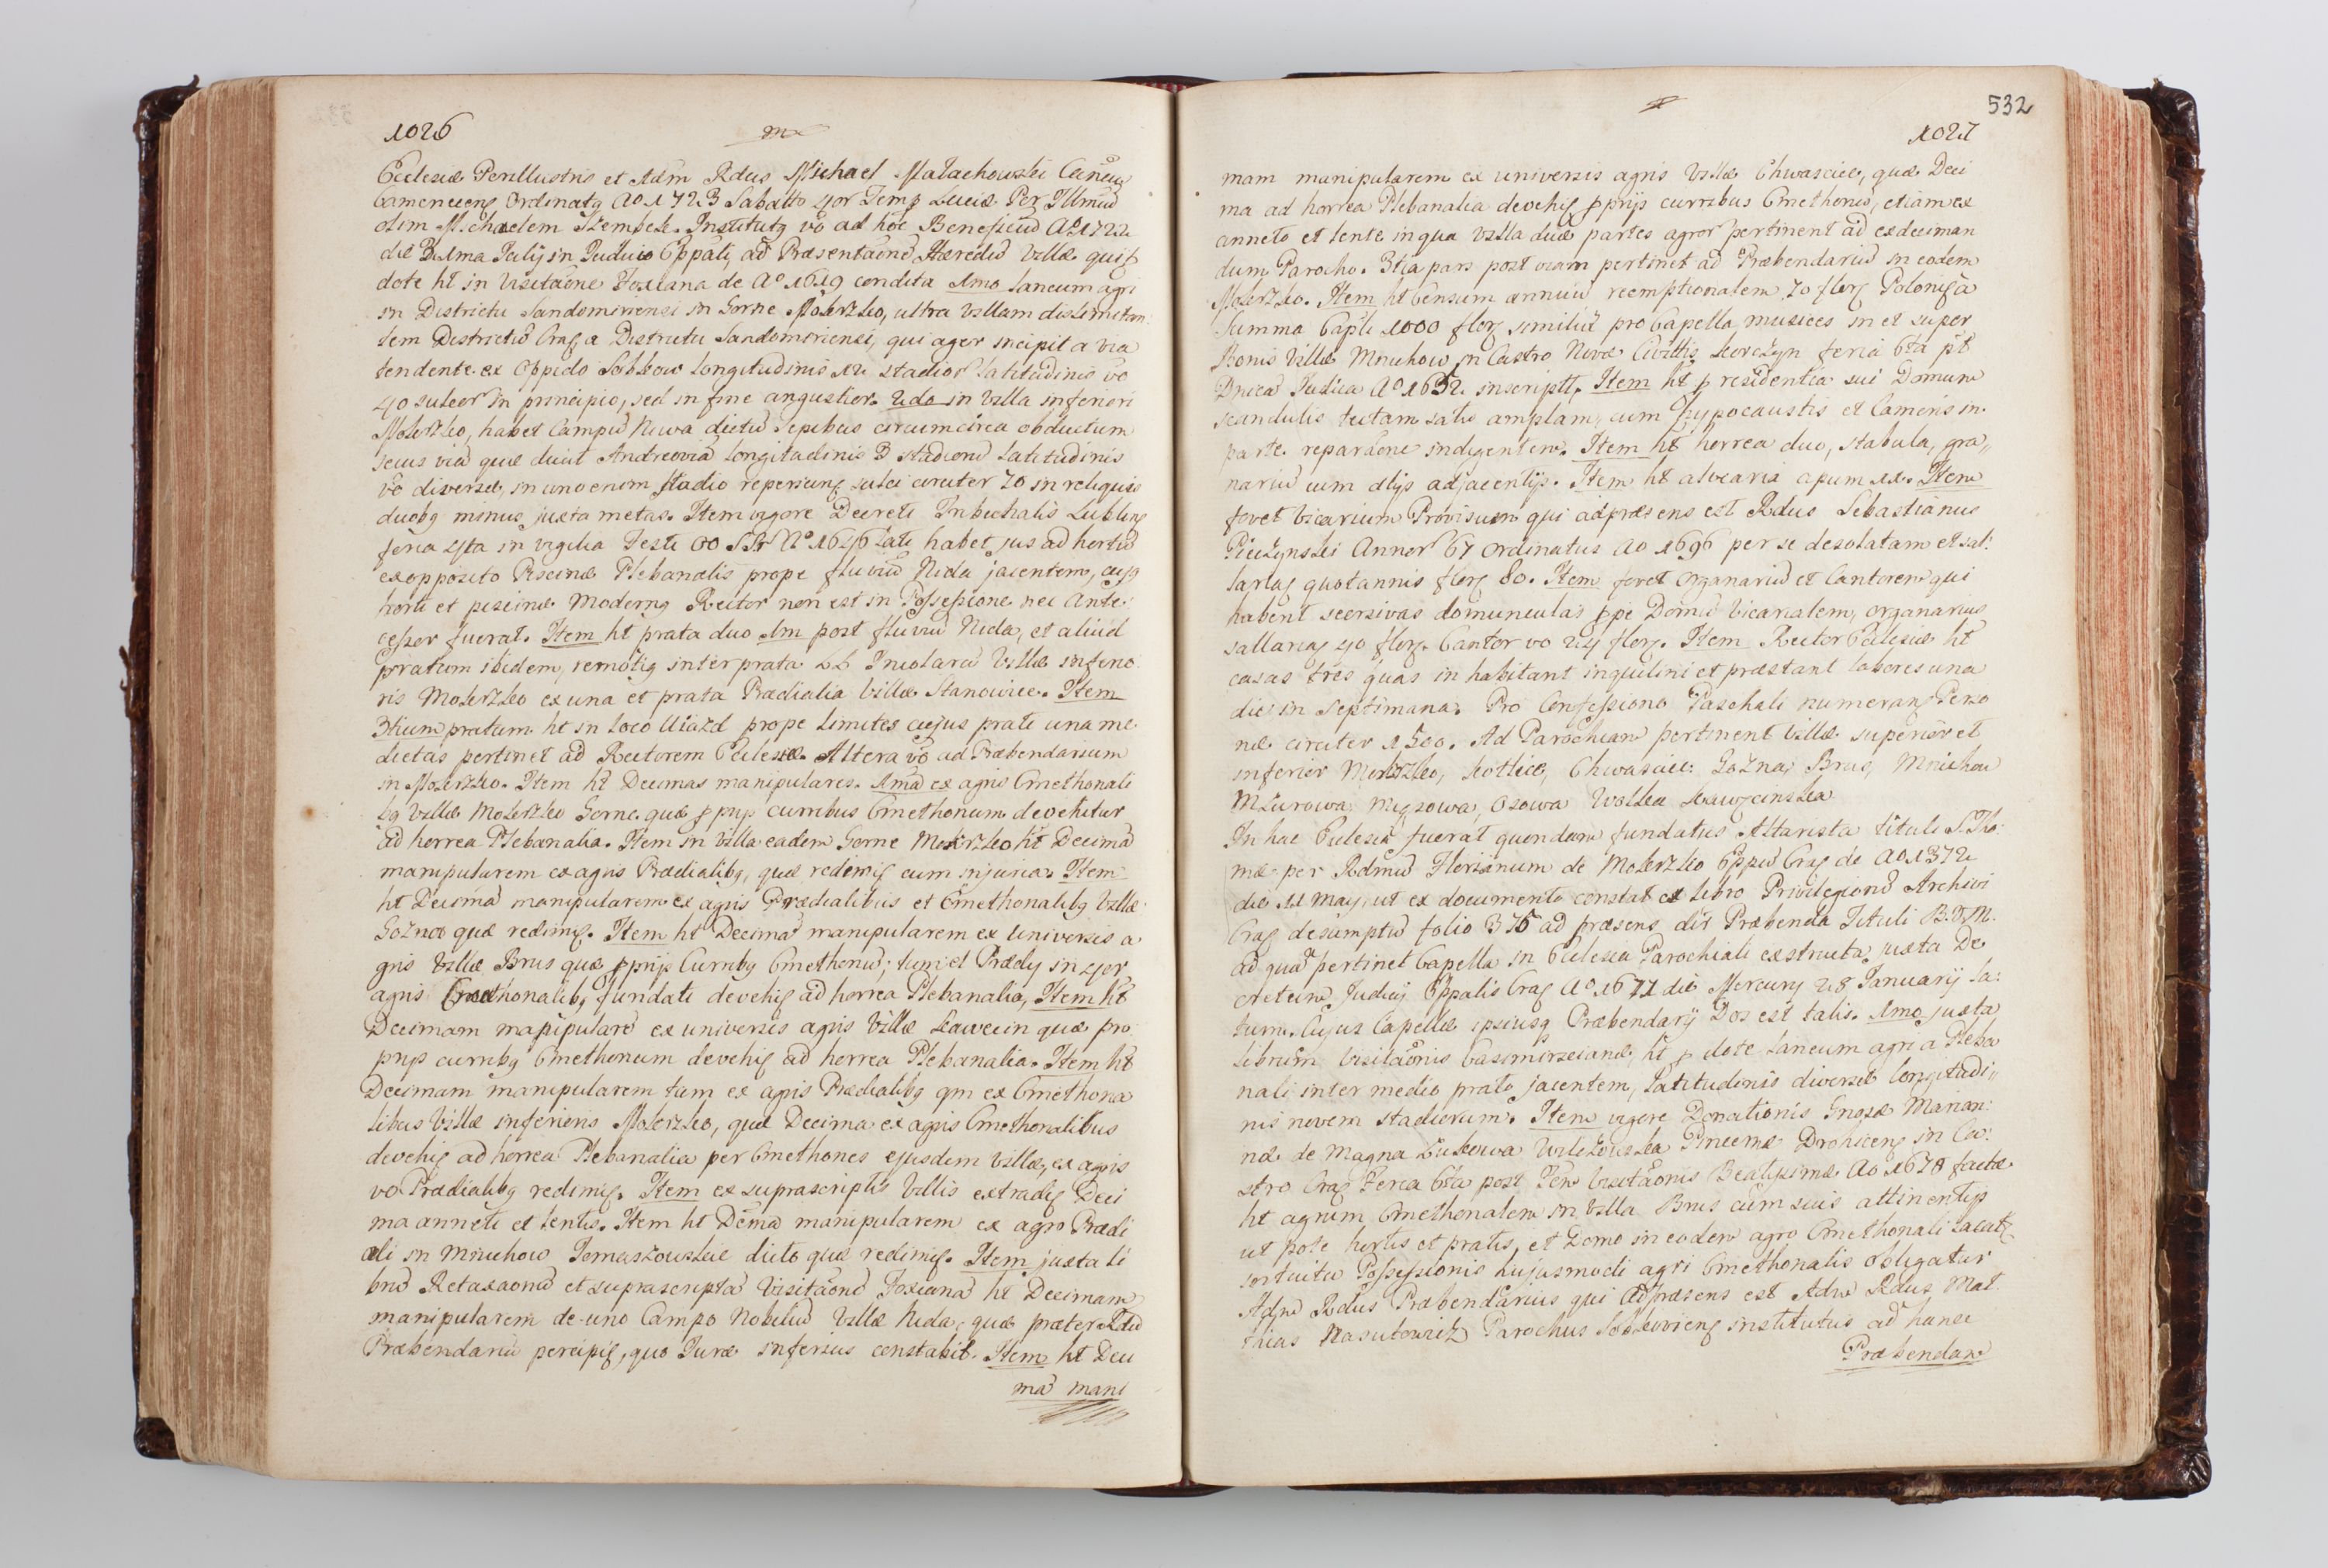 1026
Ecclesiæ Perillustris et Adm Rdus Michael Małachowski Canõcus
Camenecens Ordinatq Aº 1723 Sabatto 4or Temp Luciæ Per Illmũ
olim Michaelem Szembek. Institutq vo ad hoc Beneficiũ Aº 1722
die Julij in Judicio Eppali, ad Præsentaõnẽ Hæredũ Villæ qui p
dote ht in Visitaõne Foxiana de Aº 1619 condita 1mo Laneum agri
in Districtu Sandomiriensi in Gorne Mokrzko, ultra Villam dislimitan
tem Districtũ Crac a Districtu Sandomiriensi, qui ager incipit a via
tendente ex Oppido Sobkow Longitudinis stadior Latitudinis vo
40 sulcor in principio, sed in fine angustior. 2do in Villa inferiori
Mokrzko, habet Campũ Niwa dictũ sepibus circumcirca obductum
secus viã quæ ducit Andreoviã Longitudinis 3 stadiorũ Latitudinis
vo diversæ, in uno enim stadio reperiunt sulci circiter 70 in reliquis
duobq minus juxta metas. Item vigore Decreti Tribunalis Lublinen
feria 4ta in vigilia Festi OO SSr Aº 1646 Lati habet jus ad hortũ
ex opposito Piscinæ Plebanalis prope fluviũ Nida jacentem, cujq
horti et piscinæ Modernq Rector non est in Possessione nec Ante
cessor fuerat. Item ht prata duo 1m post fluviũ Nida, et aliud
pratum ibidem, remotiq inter prata LL Incolarũ Villæ inferio
ris Mokrzko ex una et prata Prædialia Villæ Stanowice. Item
3tium pratum ht in Loco Uiazd prope Limites cujus prati una me
dietas pertinet ad Rectorem Ecclesiæ Altera vo ad Præbendarium
in Mokrzko. Item ht Decimas manipulares. 1mã ex agris Cmethonali
bq Villæ Mokrzko Gorne quæ pprijs curribus Cmethonum devehitur
ad horrea Plebanalia. Item in Villa eadem Gorne Mokrzko ht Decimã
manipularem ex agris Prædialibq, quæ redimit cum injuria. Item
ht Decimã manipularem ex agris Prædialibus et Cmethonalibq Villæ
Goznа quæ redimit. Item ht Decimã manipularem ex universis a
gris Villæ Brus quæ pprijs Curribq Cmethonũ; tum et Prædij in 4or
agris Cmethonalibq fundati devehit ad horrea Plebanalia, Item ht
Decimam manipularẽ ex universis agris Villæ Kawecin quæ pro
prijs curribq Cmethonum devehit ad horrea Plebanalia. Item ht
Decimam manipularem tum ex agris Prædialibq qm ex Cmethona
libus Villæ inferioris Mokrzko, quæ Decima ex agris Cmethonalibus
devehit ad horrea Plebanalia per Cmethones ejusdem Villæ, ex agris
vo Prædialibq redimit. Item ex suprascriptis Villis extradit Deci
ma anneti et lentis. Item ht Decimã manipularem ex agro Prædi
ali in Mniichow Tomaszowskie dicto quæ redimit. Item juxta Li
brũ Retaxaonũ et suprascriptã Visitaõnẽ Foxianã ht Decimam
manipularem de uno Campo Nobiliũ Villæ Nida, quæ præter Rdũ
Præbendariũ percipit, quo Jure inferius constabit. Item ht Deci
mã mani
532
1027
mam manipularem ex universis agris Villæ Chwascice, quæ Deci
ma ad horrea Plebanalia devehit pprijs curribus Cmethonũ, etiam ex
anneto et lente in qua Villa duæ partes agror pertinent ad exdeciman
dum Parocho. 3tia pars post viam pertinet ad Præbendariũ in eodem
Mokrzko. Item ht Censum annuũ reemptionalem 70 flor Polonic a
Summa Capli 1000 flor similiũ pro Capella musices in et super
Bonis Villæ Mnichow in Castro Novæ Civittis Korczyn feria 6ta pt
Dnicã Judica Aº 1652 inscriptt. Item ht p residentia sui Domum
scandulis tectam satis amplam, cum hypocaustis et Cameris in
parte reparaõne indigentem. Item ht horrea duo, stabula, gra„
nariũ cum alijs adjacentijs. Item ht alvearia apum xx. Item
fovet Vicarium Provisum qui ad præsens est Rdus Sebastianus
Pieczynski Annor 67 Ordinatus Aº 1696 per se desolatam et sal
lariaq quotannis flor 80. Item fovet Organariũ et Cantorem qui
habent seorsivas domunculas ppe Domũ Vicarialem, organarius
sallariaq 40 flor. Cantor vo 24 flor. Item Rector Ecclesiæ ht
casas tres quas inhabitant inquilini et præstant labores una
die in Septimana. Pro Confessione Paschali numerant Perso
næ circiter 1500. Ad Parochiam pertinent Villæ superior et
inferior Mokrzko, Kotlice, Chwascice Gozna, Brus, Mnichow
Mzurowa, Mięsowa, Osowa Wolka Kawęcinska
In hac Ecclesia fuerat quondam fundatus Altarista tituli S. Tho
mæ per Rdmũ Florianum de Mokrzko Eppũ Crac de Aº 1372
die 11 Maij, ut ex documento constat ex Libro Privilegiorũ Archivi
Crac desumptũ folio 375 ad præsens dit Præbenda Tituli B.V.M.
ad quã pertinet Capella in Ecclesia Parochiali exstructa, juxta De
cretum Judicij Eppalis Crac Aº 1677 die Mercurij 28 Januarij La
tum. Cujus Capellæ ipsiusq Præbendarij Dos est talis. 1mo juxta
Librum Visitaõnis Casimirscianæ, ht p dote Laneum agri a Pleba
nali inter medio prato jacentem, Latitudinis diversæ Longitudi„
nis novem stadiorum. Item vigore Donationis Gnosæ Marian
næ de Magna Zukowa Wilczowska Pincernæ Drohicens in Ca
stro Crac Feria 6ta post Fem Visitaõnis Beatissimæ Aº 1678 factæ
ht agrum Cmethonalem in Villa Brus cum suis attinentijs
ut pote hortis et pratis, et Domo in eodem agro Cmethonali Locat
fortuitu Possessionis hujusmodi agri Cmethonalis obligatur
Adm Rdus Præbendarius qui ad præsens est Adm Rdus Mat
thias Nasutowicz Parochus Sobkoviens institutus ad hanc
Præbendam